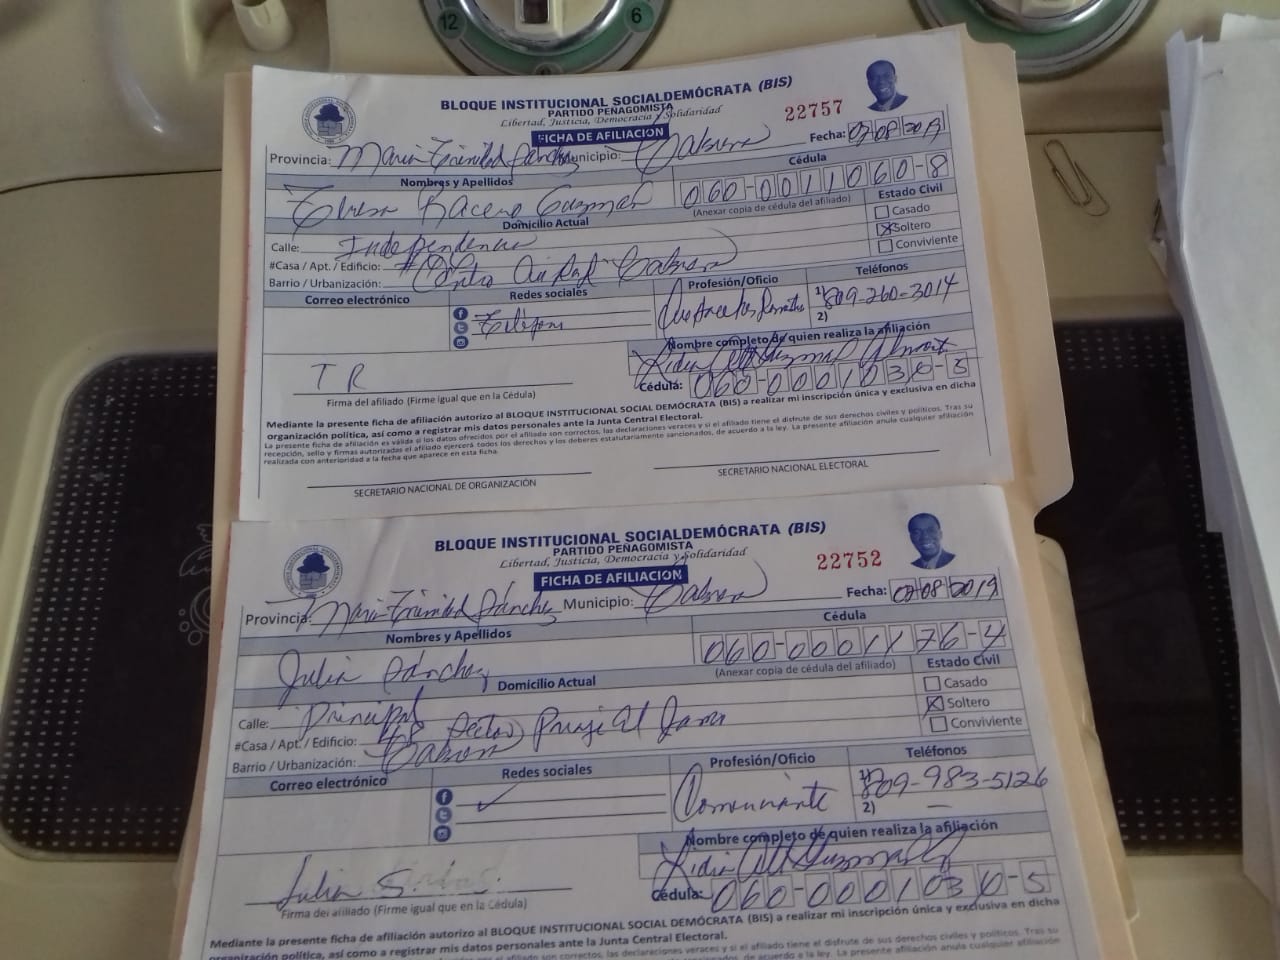 12
6
BLOQUE INSTITUCIONAL SOCIALDEMÓCRATA (BIS)
PARTIDO PEÑAGOMISTA
Libertad, Justicia, Democracia y Solidaridad
22757
FICHA DE AFILIACIÓN
Fecha: 07 08 2019
Provincia: María Trinidad Sánchez Municipio: Cabrera
Nombres y Apellidos
Cédula
060-0011060-8
(Anexar copia de cédula del afiliado)
Estado Civil
Domicilio Actual
Casado
Soltero
Conviviente
Calle: Independencia
#Casa / Apt. / Edificio:
Barrio / Urbanización: Cabrera
Correo electrónico
Redes sociales
Profesión/Oficio
Teléfonos
1) 809-260-3014
2)
Nombre completo de quien realiza la afiliación
Cédula: 060-0001036-5
TR
Firma del afiliado (Firme igual que en la Cédula)
Mediante la presente ficha de afiliación autorizo al BLOQUE INSTITUCIONAL SOCIAL DEMÓCRATA (BIS) a realizar mi inscripción única y exclusiva en dicha
organización política, así como a registrar mis datos personales ante la Junta Central Electoral.
La presente ficha de afiliación es válida si los datos ofrecidos por el afiliado son correctos, las declaraciones veraces y si el afiliado tiene el disfrute de sus derechos civiles y políticos. Tras su
recepción, sello y firmas autorizadas el afiliado ejercerá todos los derechos y los deberes estatutariamente sancionados, de acuerdo a la ley. La presente afiliación anula cualquier afiliación
realizada con anterioridad a la fecha que aparece en esta ficha.
SECRETARIO NACIONAL DE ORGANIZACIÓN
SECRETARIO NACIONAL ELECTORAL
BLOQUE INSTITUCIONAL SOCIALDEMÓCRATA (BIS)
PARTIDO PEÑAGOMISTA
Libertad, Justicia, Democracia y Solidaridad
22752
FICHA DE AFILIACIÓN
Fecha: 07 08 2019
Provincia: María Trinidad Sánchez Municipio: Cabrera
Nombres y Apellidos
Cédula
Julia Sánchez
060-0001176-4
(Anexar copia de cédula del afiliado)
Estado Civil
Domicilio Actual
Casado
Soltero
Conviviente
Calle: Principal
#Casa / Apt. / Edificio:
Barrio / Urbanización: Cabrera
Correo electrónico
Redes sociales
Profesión/Oficio
Comerciante
Teléfonos
1) 809-983-5126
2) —
Nombre completo de quien realiza la afiliación
Cédula: 060-0001036-5
Julia S.
Firma del afiliado (Firme igual que en la Cédula)
Mediante la presente ficha de afiliación autorizo al BLOQUE INSTITUCIONAL SOCIAL DEMÓCRATA (BIS) a realizar mi inscripción única y exclusiva en dicha
organización política, así como a registrar mis datos personales ante la Junta Central Electoral.